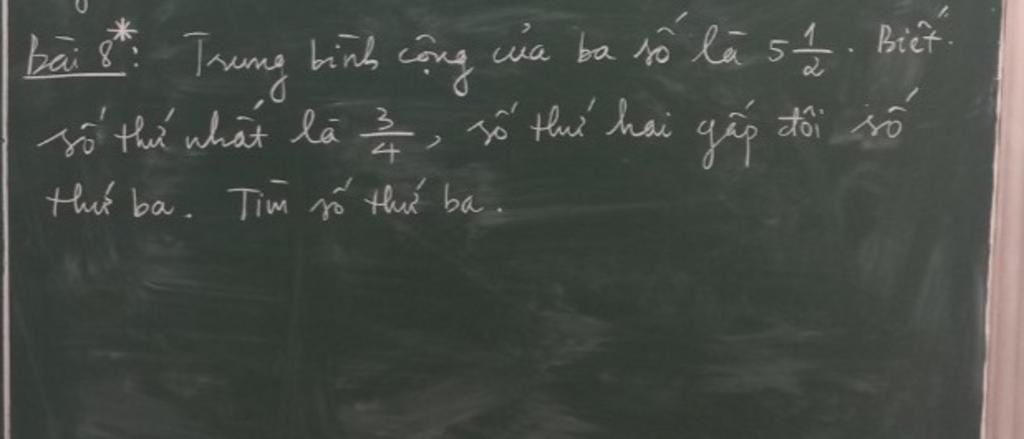 Bài 8*: Trung bình cộng của ba số là 5 1/2. Biết
số thứ nhất là 3/4, số thứ hai gấp đôi số
thứ ba. Tìm số thứ ba.